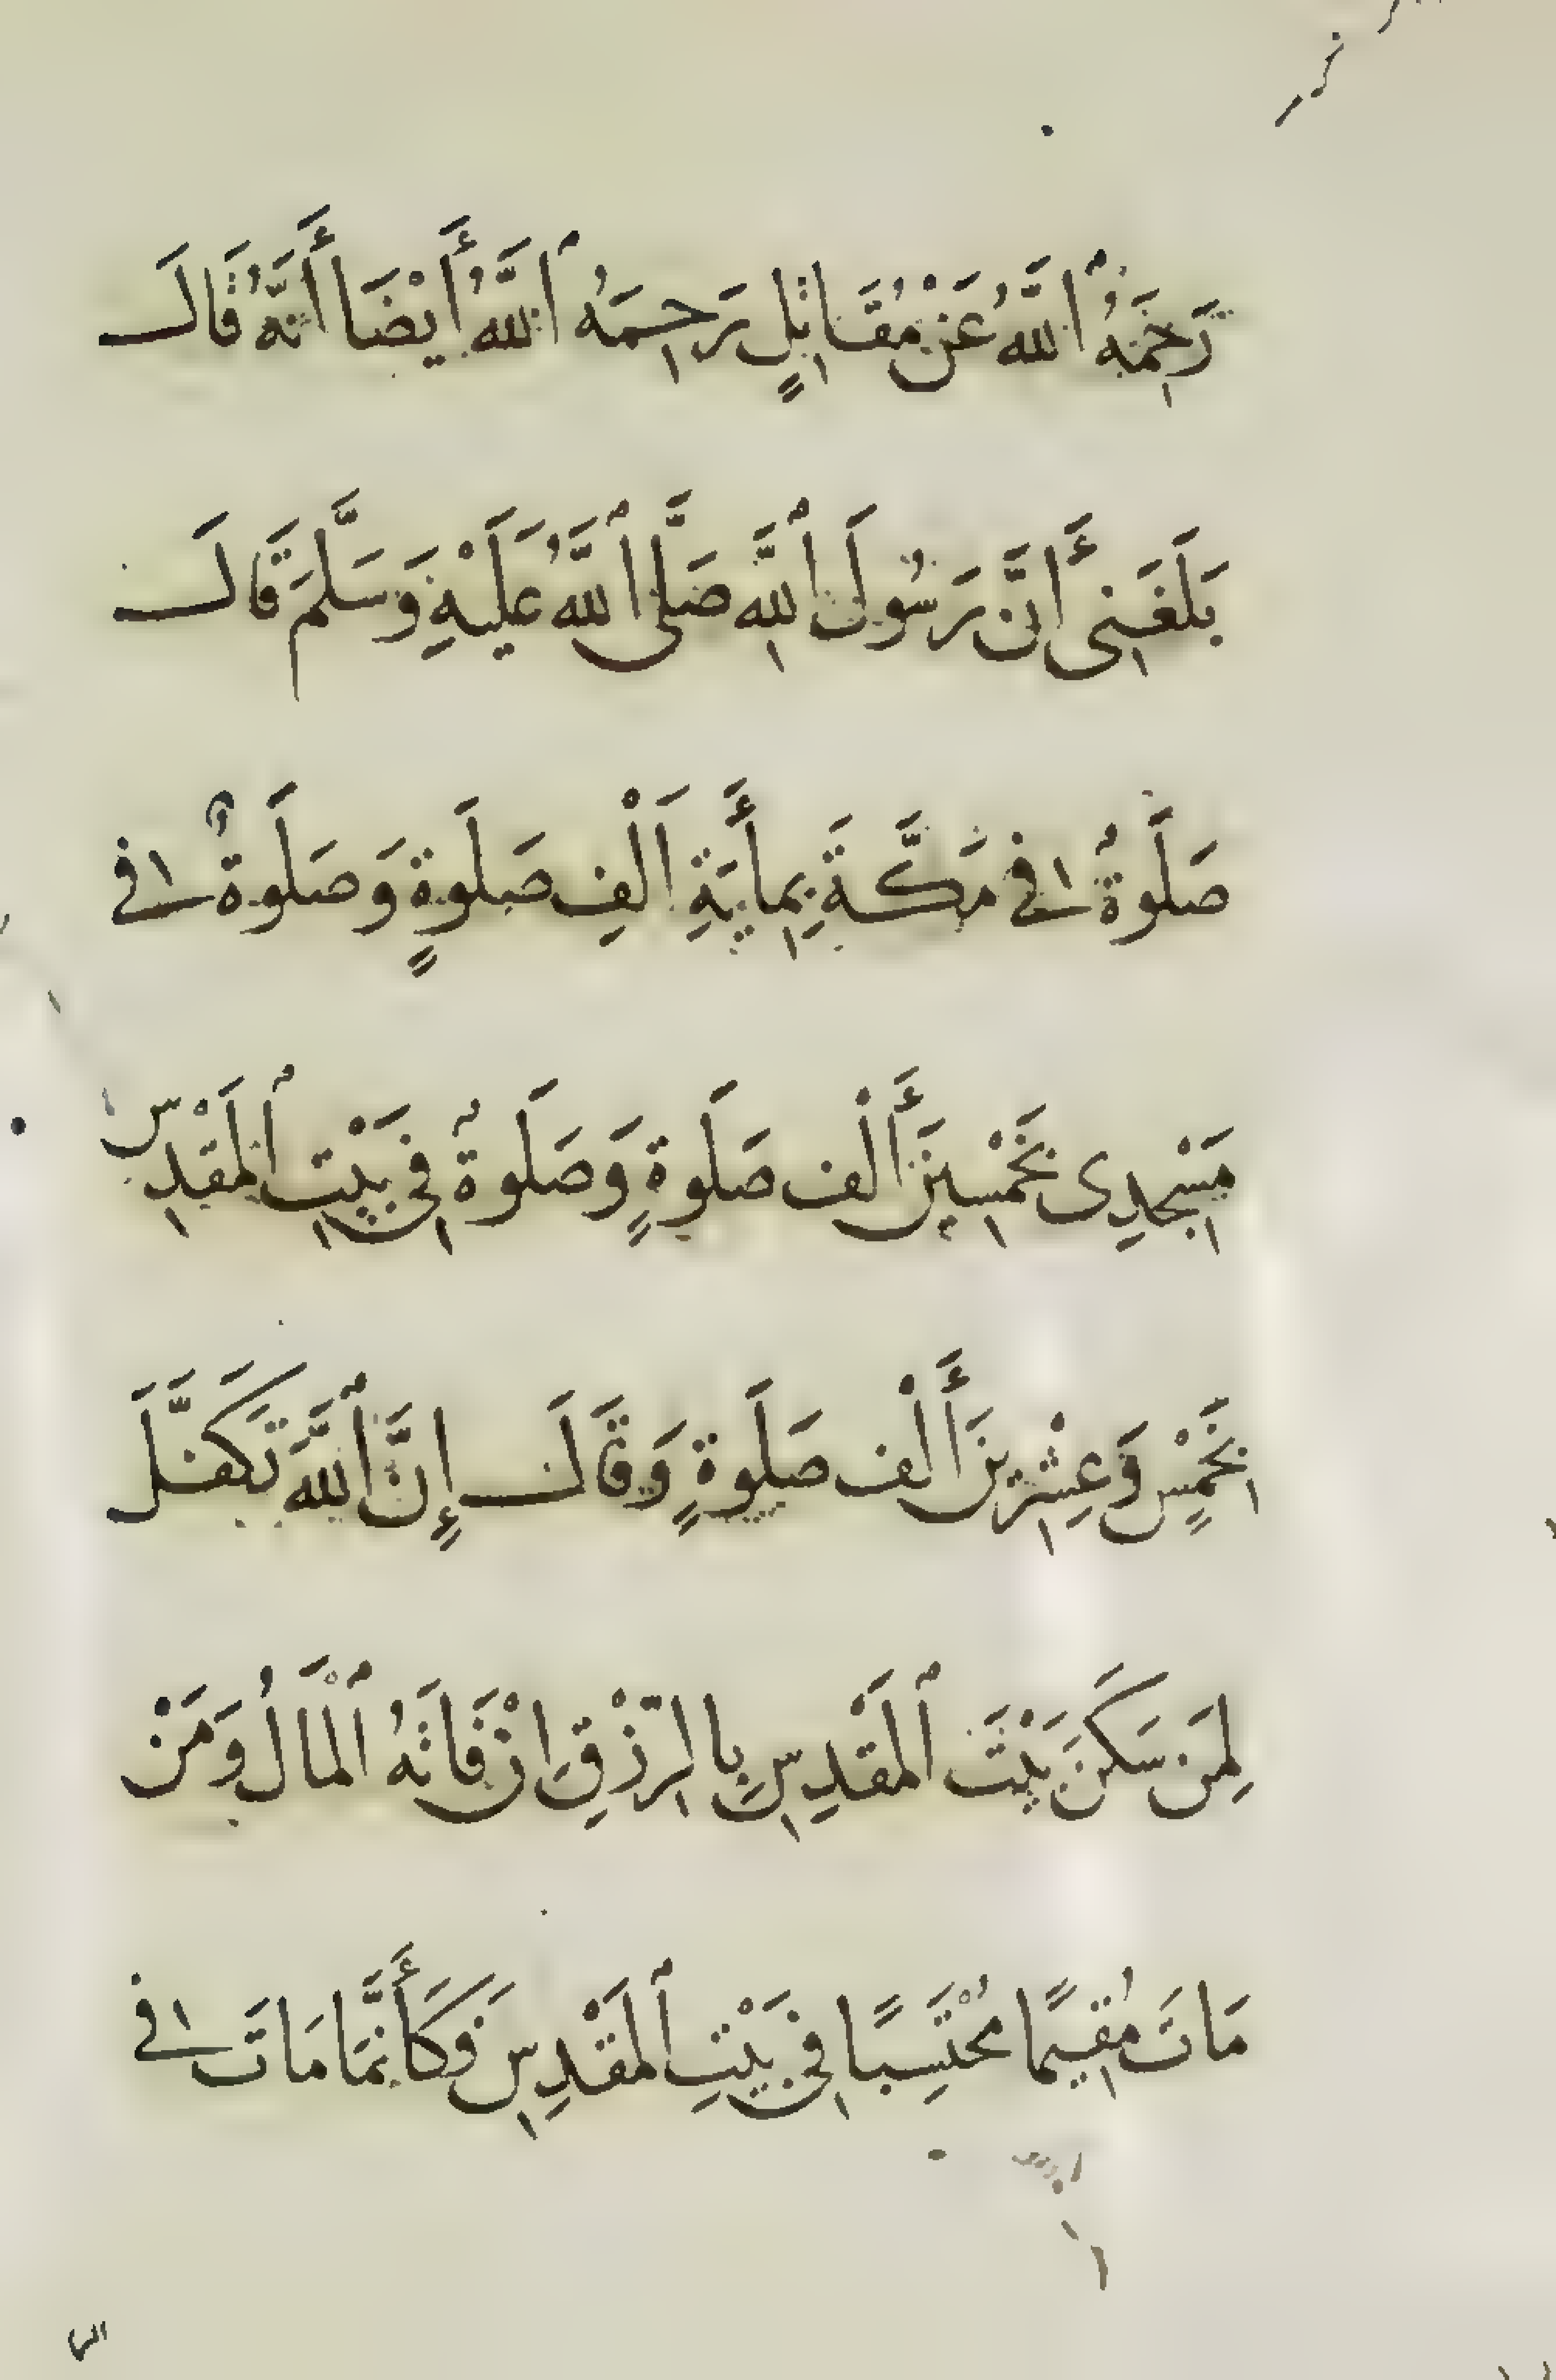 رَحِمَهُ ٱللَّهُ عَنْ مُقَاتِلٍ رَحِمَهُ ٱللَّهُ أَيْضَا أَنَّهُ قَالَ
بَلَغَنِى أَنَّ رَسُولَ ٱللَّهِ صَلَّى ٱللَّهُ عَلَيْهِ وَسَلَّمَ قَالَ
صَلَوةٌ فِى مَكَّةَ بِمِأَيَةِ اَلْفِ صَلَوةٍ وَصَلَوةٌ فِى
مَسْجِدِى بِخَمْسِينَ أَلْفِ صَلَوةٍ وَصَلَوةٌ فِى بَيْتِ ٱلْمَقْدِسِ
بِخَمْسٍ وَعِشْرِينَ أَلْفِ صَلَوةٍ وَقَالَ إِنَّ ٱللَّهَ تَكَفَّلَ
لِمَن سَكَنَ بَيْتَ ٱلْمَقْدِسِ بِالرِّزْقِ اِنْ فَاتَهُ ٱلْمَالُ وَمَنْ
مَاتَ مُقِيمًا مُحْتَسِبًا فِى بَيْتِ ٱلْمَقْدِسِ فَكَأَنَّمَا مَاتَ فِى
السما